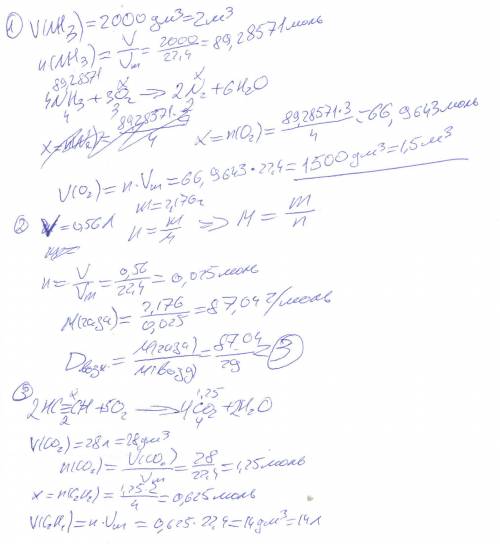 ① V(NH₃) = 2000 дм³ = 2 м³
n(NH₃) = V/Vm = 2000/22,4 = 89,28571 моль
89,28571 x
4NH₃ + 3O₂ → 2N₂ + 6H₂O
4 3
x = n(O₂) = 89,28571·3/4 = 66,9643 моль
V(O₂) = n·Vm = 66,9643·22,4 = 1500 дм³ = 1,5 м³
m = 2,176 г
② V = 0,56 л n = m/M => M = m/n
n = V/Vm = 0,56/22,4 = 0,025 моль
M(газа) = 2,176/0,025 = 87,04 г/моль
Dвозд. = M(газа)/M(возд) = 87,04/29 = 3
③ x 1,25
2HC≡CH + 5O₂ → 4CO₂ + 2H₂O
2 4
V(CO₂) = 28 л = 28 дм³
n(CO₂) = V(CO₂)/Vm = 28/22,4 = 1,25 моль
x = n(C₂H₂) = 1,25·2/4 = 0,625 моль
V(C₂H₂) = n·Vm = 0,625·22,4 = 14 дм³ = 14 л